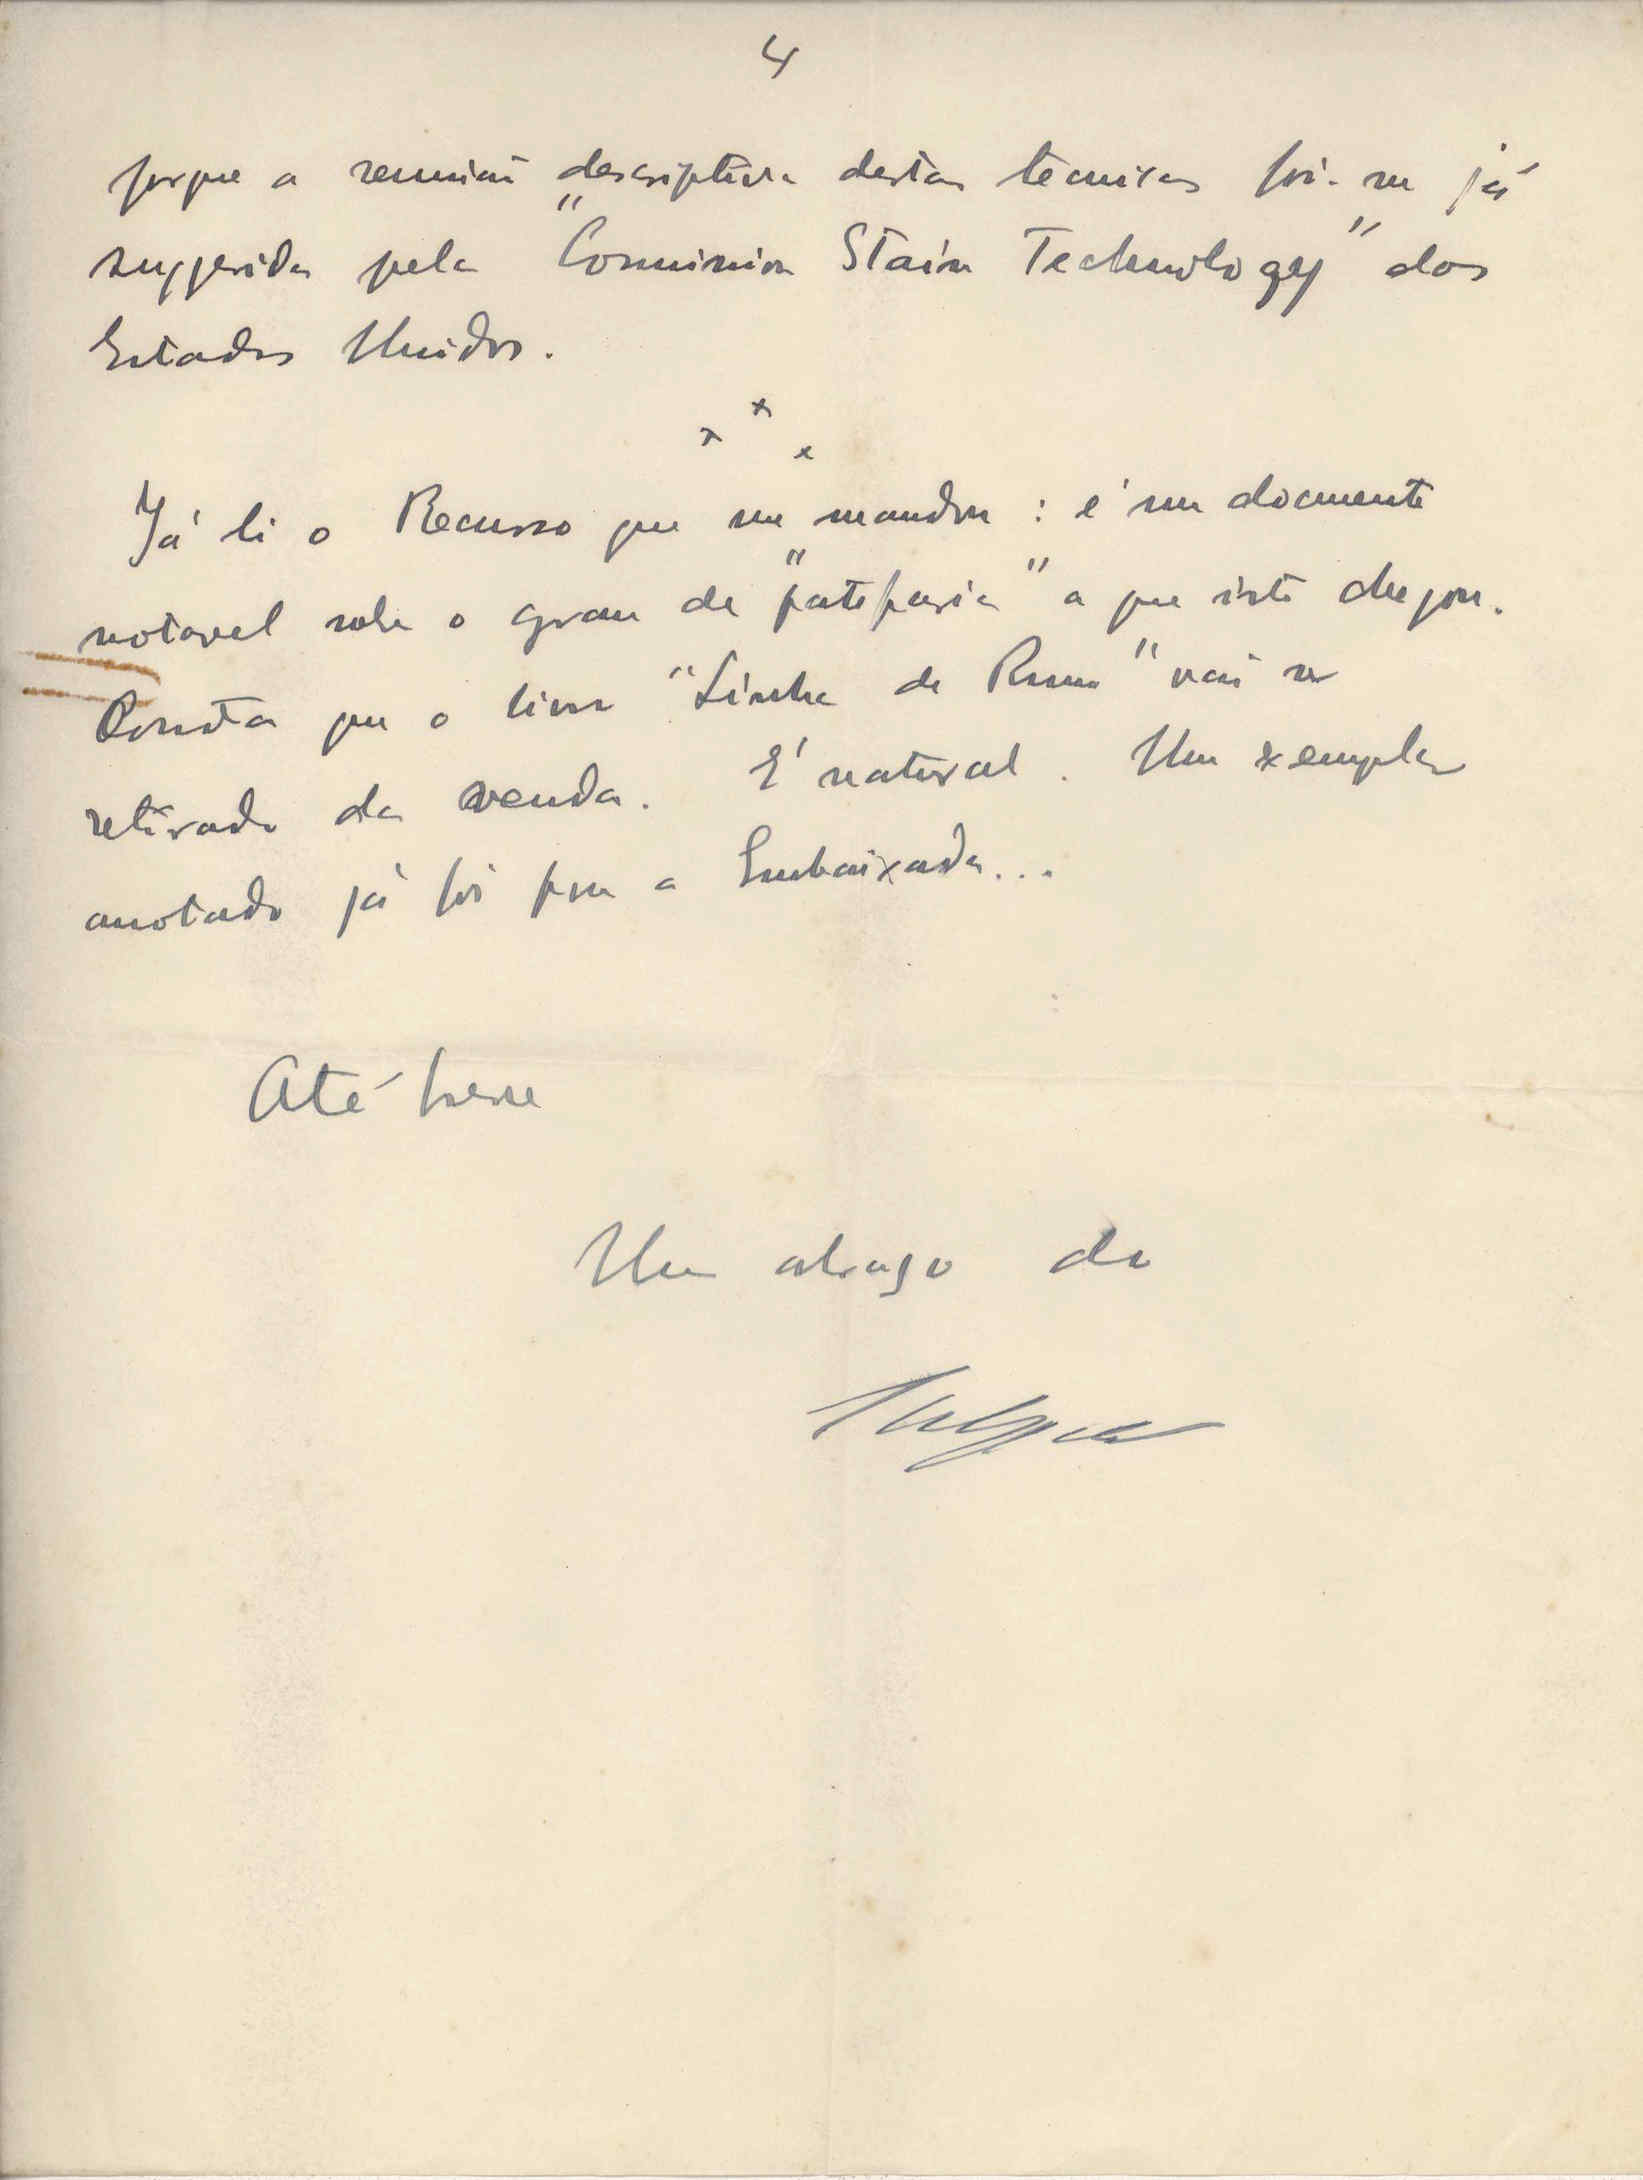 4
porque a reunião descriptiva destas tecnicas foi-me já
suggerida pela "Commission Stain Technology" dos
Estados Unidos.
x x x
Já li o Recurso que me mandou : é um documento
notavel sobre o grau de "patifaria" a que isto chegou.
Consta que o livro "Linha de Rumo" vai ser
retirado da venda. É natural. Um exemplar
anotado já foi para a Embaixada...
Até breve
Um abraço do